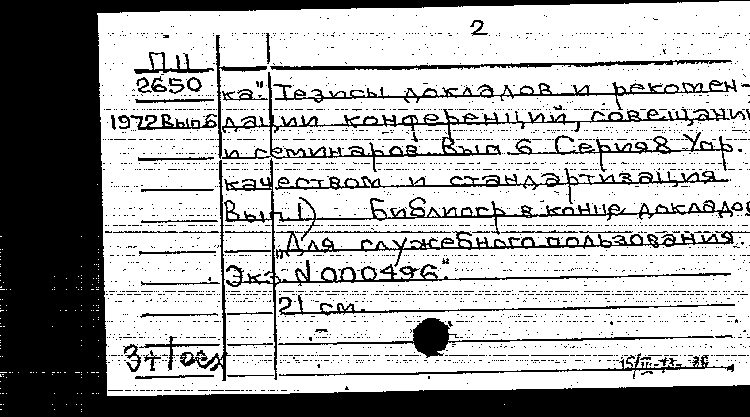 2
П 11
2650
1972 Вып 6
ка". Тезисы докладов и рекомен-
дации конференций, совещаний
и семинаров. Вып. 6 Серия 8 Упр.
качеством и стандартизация
Вып 1) Библиогр в конце докладов
„Для служебного пользования.
Экз. N 000496."
21 см.
3+1